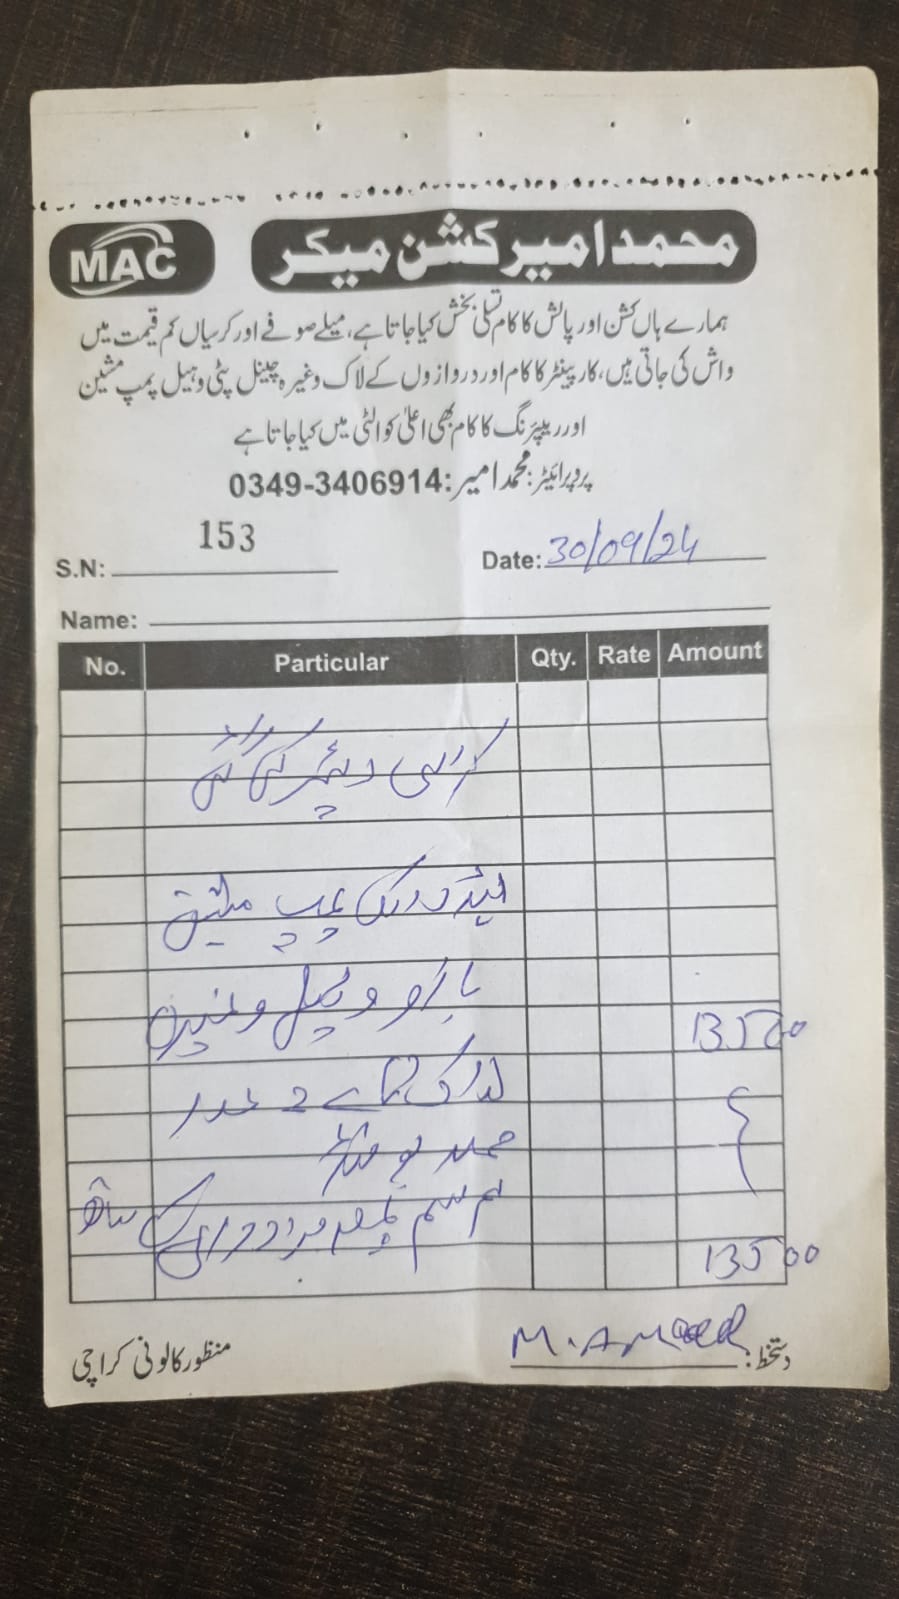 MAC
محمد امیر کشن میکر
ہمارے ہاں کشن اور پالش کا کام تسلی بخش کیا جاتا ہے، میلے صوفے اور کرسیاں کم قیمت میں
واش کی جاتی ہیں، کارپینٹر کا کام اور دروازوں کے لاک وغیرہ چینل پٹی وہیل پمپ مشین
اور ریپئرنگ کا کام بھی اعلیٰ کوالٹی میں کیا جاتا ہے
پروپرائیٹر: محمد امیر: 0349-3406914
S.N: 153
Date: 30/09/24
Name:
No. Particular Qty. Rate Amount
کرسی رپیئر کی گئی
پمپ مشین
وہیل وغیرہ 13500
2 عدد
کے ساتھ
13500
دستخط: M. AMEER
منظور کالونی کراچی